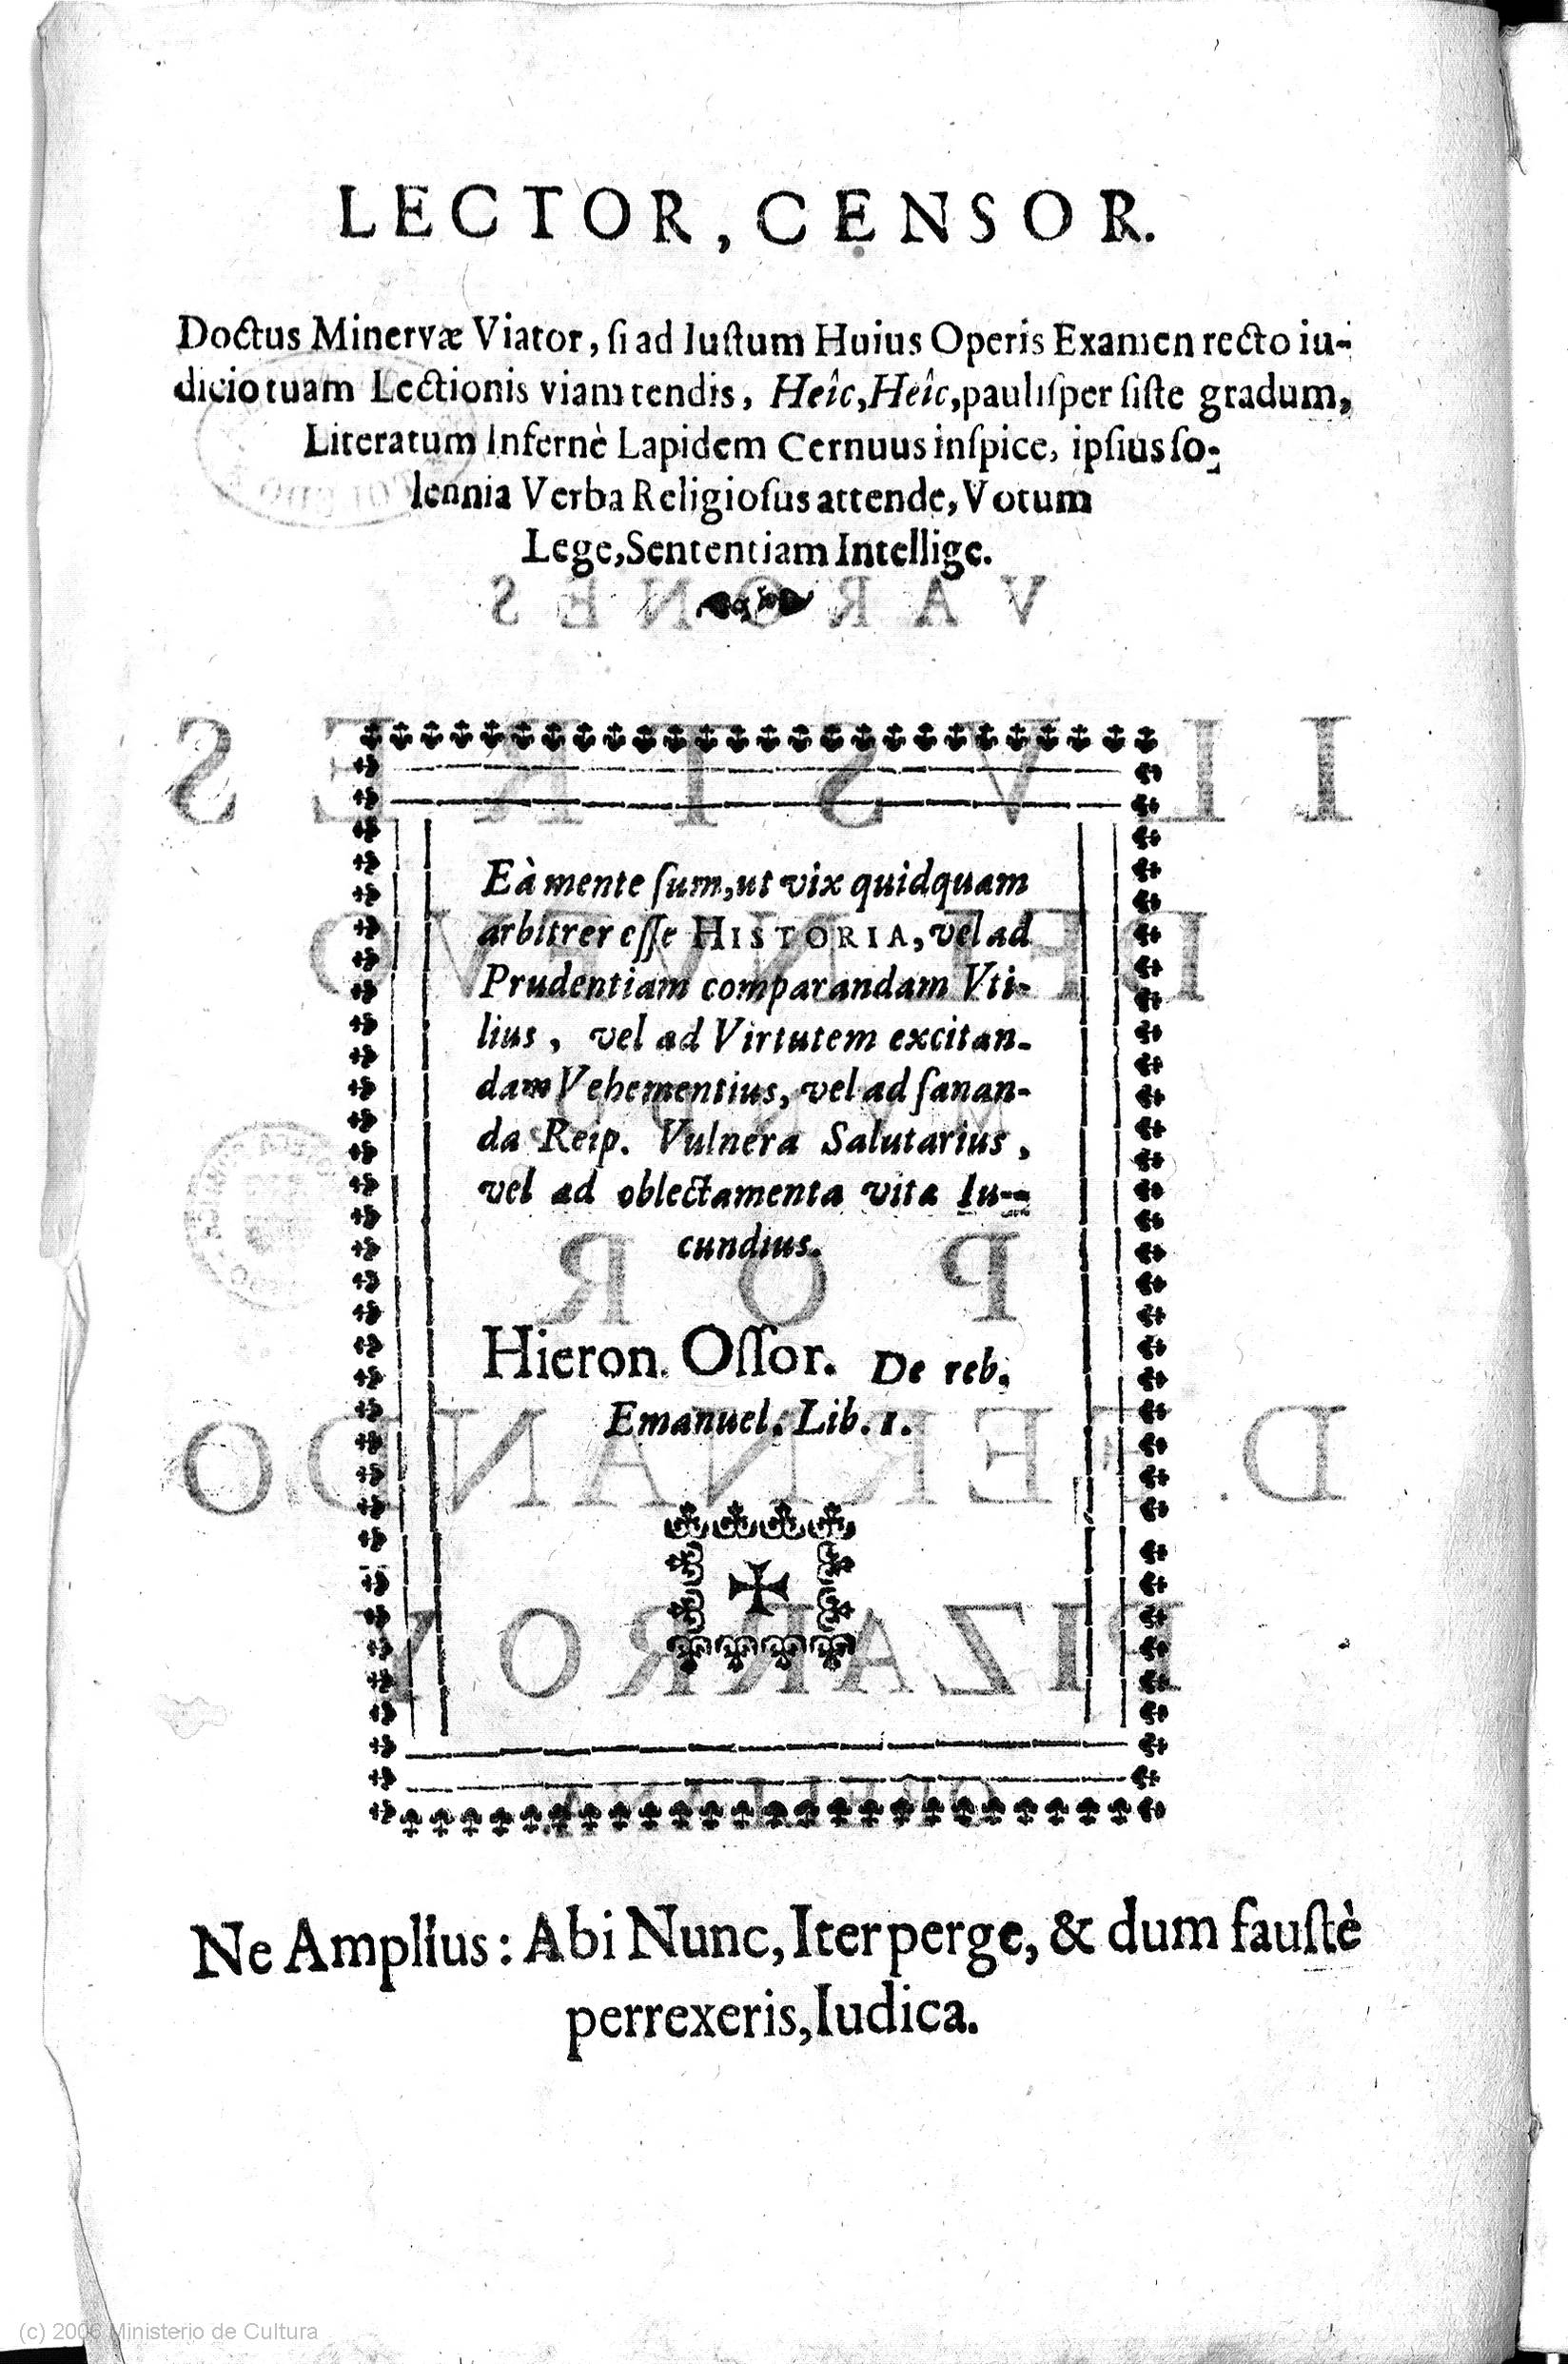 LECTOR, CENSOR.
Doctus Minervæ Viator, ſi ad Iuſtum Huius Operis Examen recto iu-
dicio tuam Lectionis viam tendis, Heîc, Heîc, pauliſper ſiſte gradum,
Literatum Infernè Lapidem Cernuus inſpice, ipſius ſo-
lennia Verba Religioſus attende, Votum
Lege, Sententiam Intellige.
VARONES
ILVSTRES
DEL NVEVO
MVNDO
Eà mente ſum, ut vix quidquam
arbitrer eſſe HISTORIA, vel ad
Prudentiam comparandam Vti-
lius, vel ad Virtutem excitan-
dam Vehementius, vel ad ſanan-
da Reip. Vulnera Salutarius,
vel ad oblectamenta vita Iu-
cundius.
POR
Hieron. Oſſor. De reb.
Emanuel. Lib. 1.
D. FERNANDO
PIZARRO Y
ORELLANA.
Ne Amplius: Abi Nunc, Iter perge, & dum fauſtè
perrexeris, Iudica.
(c) 2006 Ministerio de Cultura